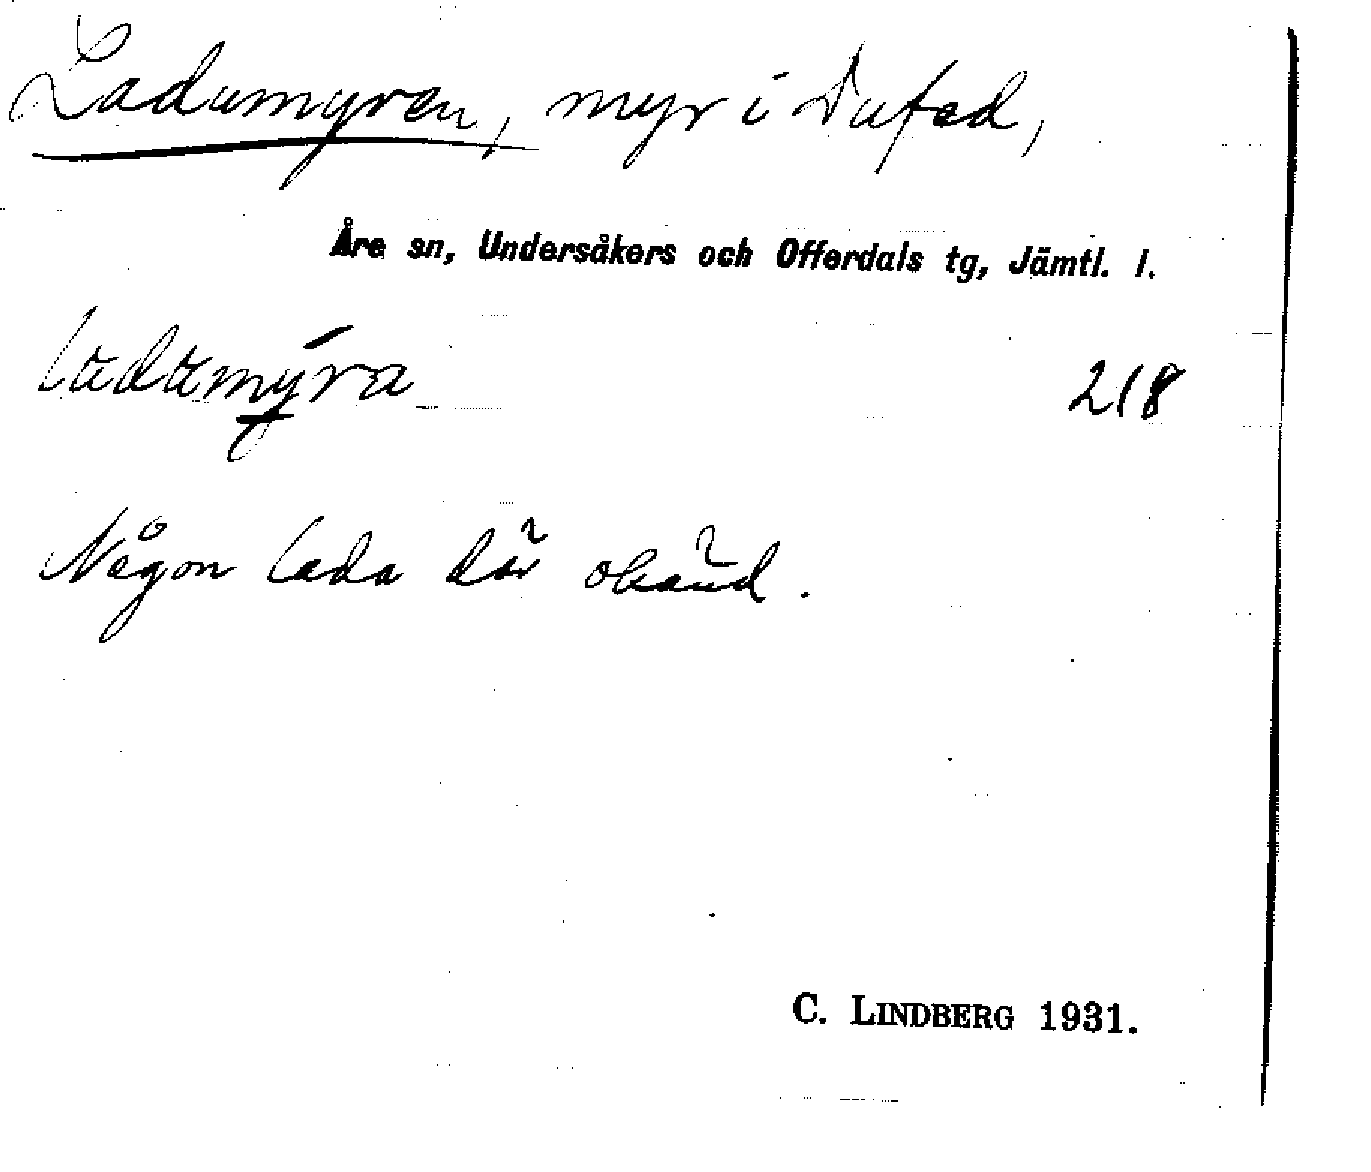 Ladumyren, myr i Dufed,
Åre sn, Undersåkers och Offerdals tg, Jämtl. l.
ladamýra
218
Någon lada där okänd.
C. LINDBERG 1931.